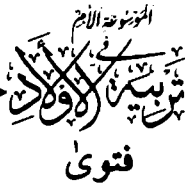 الموسوعة الأم
في
تربية الأولاد
فتوى